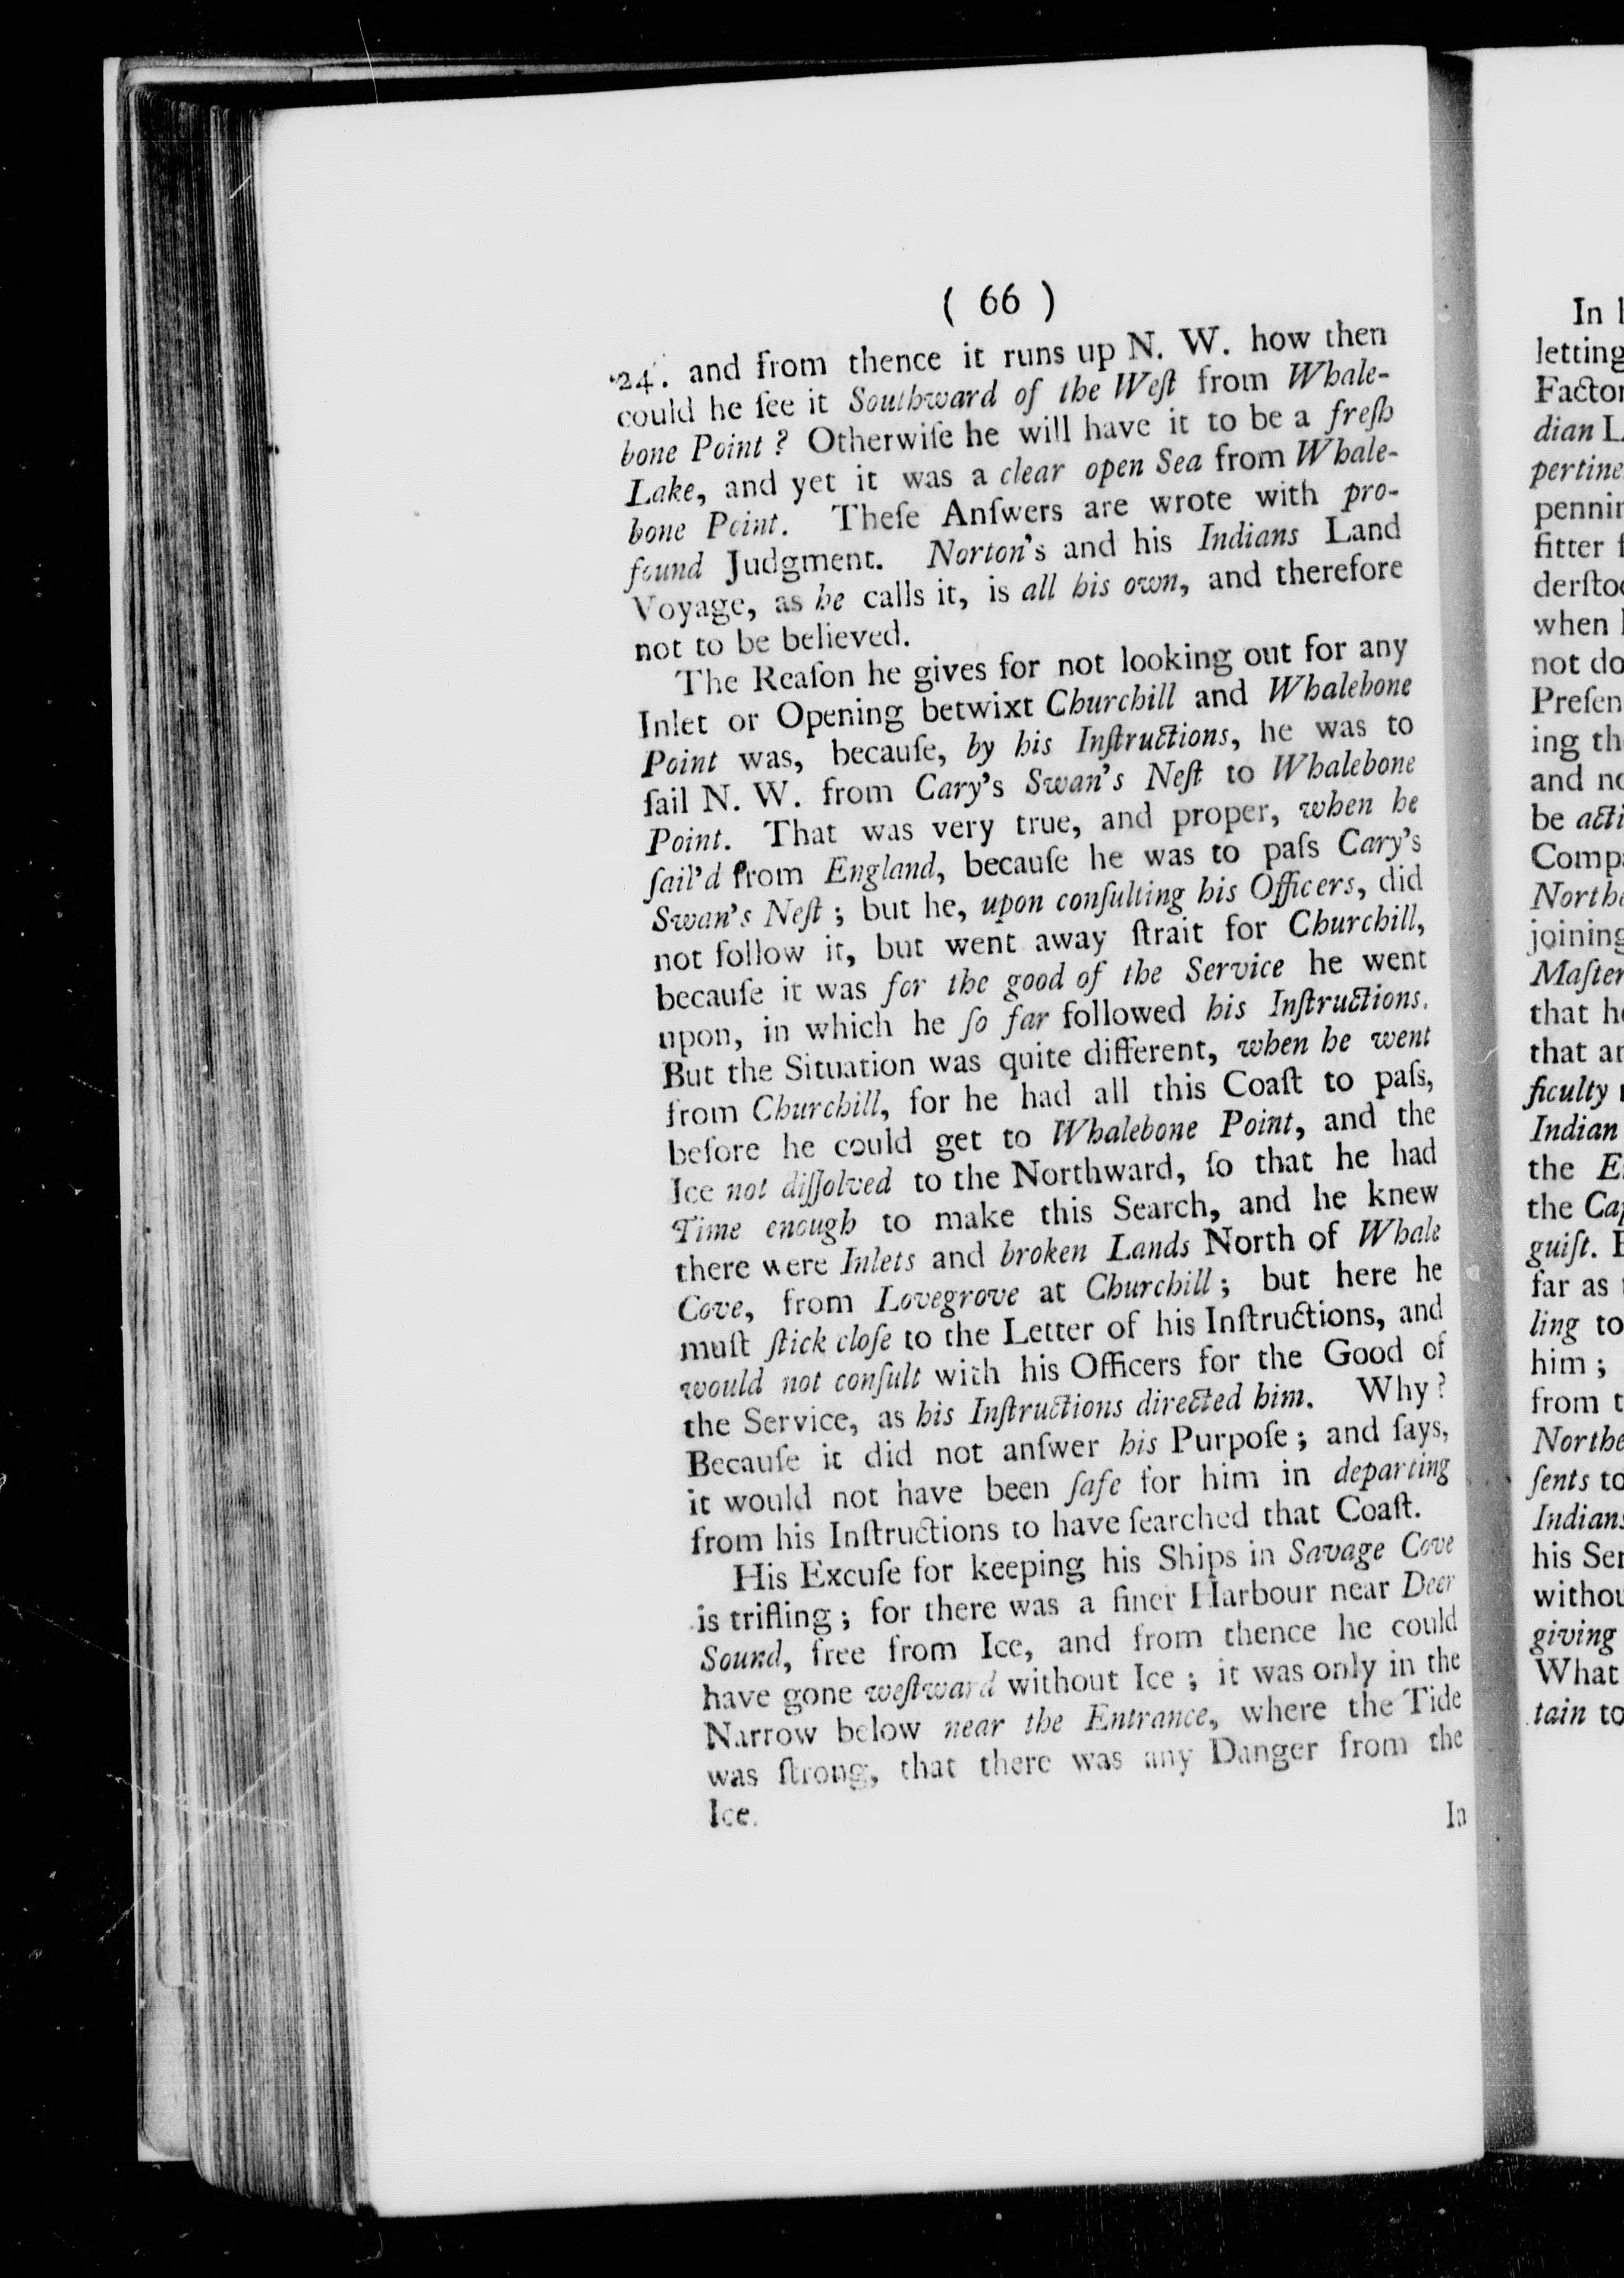 ( 66 )
24'. and from thence it runs up N. W. how then
could he ſee it Southward of the Weſt from Whale-
bone Point? Otherwiſe he will have it to be a freſh
Lake, and yet it was a clear open Sea from Whale-
bone Point. Theſe Anſwers are wrote with pro-
found Judgment. Norton's and his Indians Land
Voyage, as he calls it, is all his own, and therefore
not to be believed.
The Reaſon he gives for not looking out for any
Inlet or Opening betwixt Churchill and Whalebone
Point was, becauſe, by his Inſtructions, he was to
ſail N. W. from Cary's Swan's Neſt to Whalebone
Point. That was very true, and proper, when he
ſail'd from England, becauſe he was to paſs Cary's
Swan's Neſt; but he, upon conſulting his Officers, did
not follow it, but went away ſtrait for Churchill,
becauſe it was for the good of the Service he went
upon, in which he ſo far followed his Inſtructions.
But the Situation was quite different, when he went
from Churchill, for he had all this Coaſt to paſs,
before he could get to Whalebone Point, and the
Ice not diſſolved to the Northward, ſo that he had
Time enough to make this Search, and he knew
there were Inlets and broken Lands North of Whale
Cove, from Lovegrove at Churchill; but here he
muſt ſtick cloſe to the Letter of his Inſtructions, and
would not conſult with his Officers for the Good of
the Service, as his Inſtructions directed him. Why?
Becauſe it did not anſwer his Purpoſe; and ſays,
it would not have been ſafe for him in departing
from his Inſtructions to have ſearched that Coaſt.
His Excuſe for keeping his Ships in Savage Cove
is trifling; for there was a finer Harbour near Deer
Sound, free from Ice, and from thence he could
have gone weſtward without Ice; it was only in the
Narrow below near the Entrance, where the Tide
was ſtrong, that there was any Danger from the
Ice.
In
In
letting
Factor
dian
pertine
pennin
fitter
derſtoo
when
not do
Preſen
ing th
and no
be acti
Compa
Northe
joining
Maſter
that he
that an
ficulty
Indian
the E
the Cap
guiſt.
far as
ling to
him;
from t
Northe
ſents to
Indians
his Ser
withou
giving
What
tain to